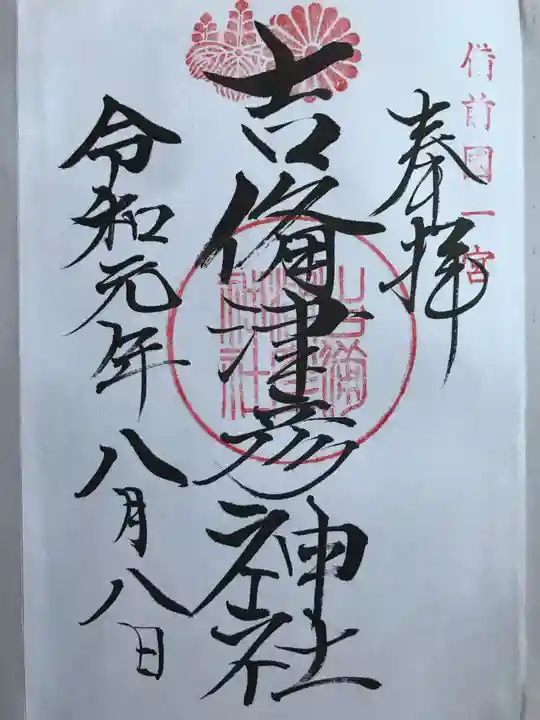 備前國一宮
奉拝
吉備津彦神社
吉備津彦神社
令和元年八月八日